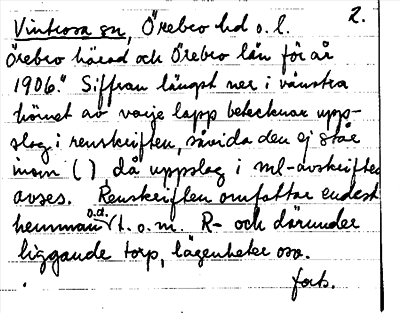 Vintrosa sn, Örebro hd o. l. 2.
Örebro härad och Örebro län för år
1906." Siffran längst ner i vänstra
hörnet av varje lapp betecknar upp-
slag i renskriften, såvida den ej står
inom ( ), då uppslag i ml-avskriften
avses. Renskriften omfattar endast
hemman o.d. t. o. m. R- och därunder
liggande torp, lägenheter osv.
forts.